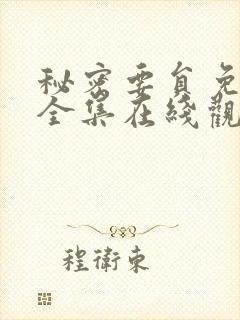 秘密要員免
全集在线觀
程衛東